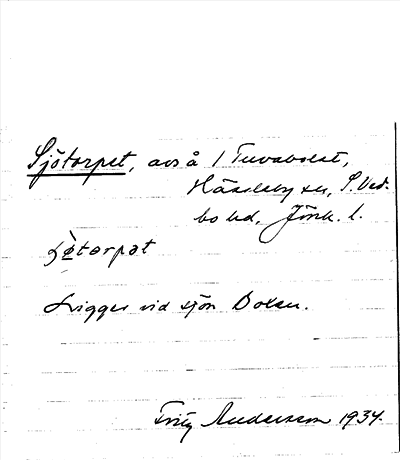 Sjötorpet, avs å 1 Tuvabolet,
Hässleby sn, S. Ved-
bo hd, Jönk. l.
sjö̀torpat
Ligger vid sjön Dolen.
Fritz Andersson 1934.